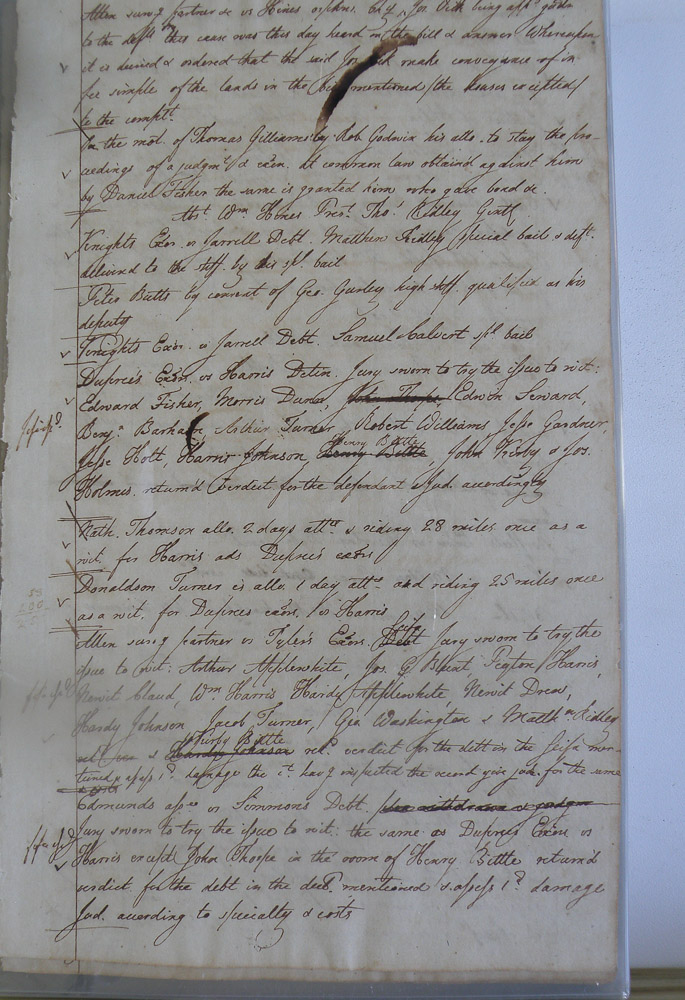 Allen surv.g partner &c vs Hines orphans. by Jos. being app.d guardn
to the defts this cause was this day heard on the bill & answer Whereupon
it is decreed & ordered that the said make conveyance of in
fee simple of the lands in the bill mentioned /the houses excepted/
to the compt.t
On the mot. of Thomas Gilliams by Rob Godwin his atto. to stay the pro-
ceedings of a judgm.t & exon. at common law obtaind against him
by Daniel Fisher the same is granted him who gave bond &c.
Wm Hines Thos Ridley Gent
Knights Exor. vs Jarrell Debt. Matthew Ridley special bail & deft.
deliverd to the sheff. by his spl. bail
Fitts Butts by consent of Geo. Gurley high sheff. qualified as his
deputy
Knights Exor. vs Jarrell Debt. Samuel Calvert spl. bail
Duprees Exors. vs Harris Detin. Jury sworn to try the issue to wit:
Edward Fisher, Morris Dunn, John Thorpe Edwin Seward,
Benj.a Barham Arthur Turner, Robert Williams Jesse Gardner,
Henry Bittle
Jesse Holt, Harris Johnson, Henry Bittle, John Kirby & Jos.
Holmes. returnd verdict for the defendant & Jud. accordingly
Nath. Thomson allo. 2 days att.a & riding 28 miles once as a
wit. for Harris ads Duprees exors
Donaldson Turner is allo. 1 day att.a and riding 25 miles once
as a wit. for Duprees exors. vs Harris
Allen surv.g partner vs Tyler's Exors. Debt Jury sworn to try the
issue to wit: Arthur Applewhite, Jos. G Blunt Peyton Harris,
Newit Claud, Wm Harris Hardy Applewhite, Newit Drew,
Hardy Johnson, Jacob Turner, Geo Washington & Matth.w Ridley
Kirby Bittle
& Hardy Johnson ret.d verdict for the debt in the men-
tiond & assess 1d damage the ct. hav.g inspected the record give jud. for the same
& costs
Edmunds assee vs Simmons Debt. plea withdrawn & judgm
Jury sworn to try the issue to wit: the same as Duprees Exors vs
Harris except John Thorpe in the room of Henry Bittle returnd
verdict for the debt in the decl. mentioned & assess 1d damage
Jud. according to specialty & costs